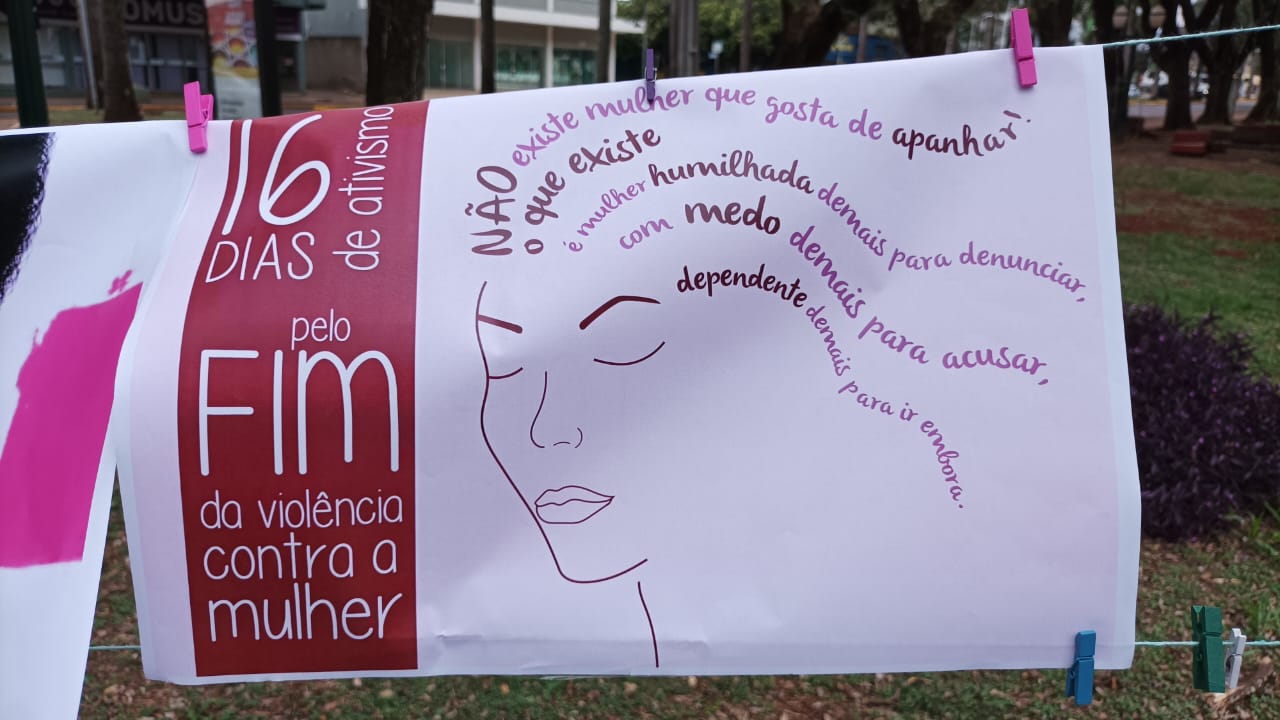 OMUS
16
DIAS
de ativismo
pelo
FIM
da violência
contra a
mulher
NÃO existe mulher que gosta de apanhar!
o que existe
é mulher humilhada demais para denunciar,
com medo demais para acusar,
dependente demais para ir embora.